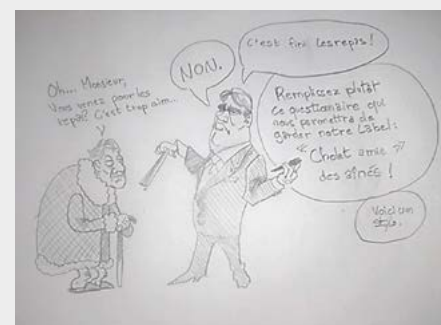 Oh... Monsieur,
Vous venez pour les
repas? C'est trop aim...
NON.
C'est fini les repas!
Remplissez plutôt
ce questionnaire qui
nous permettra de
garder notre Label:
« Cholet amie »
des aînés !
Voici un
stylo.